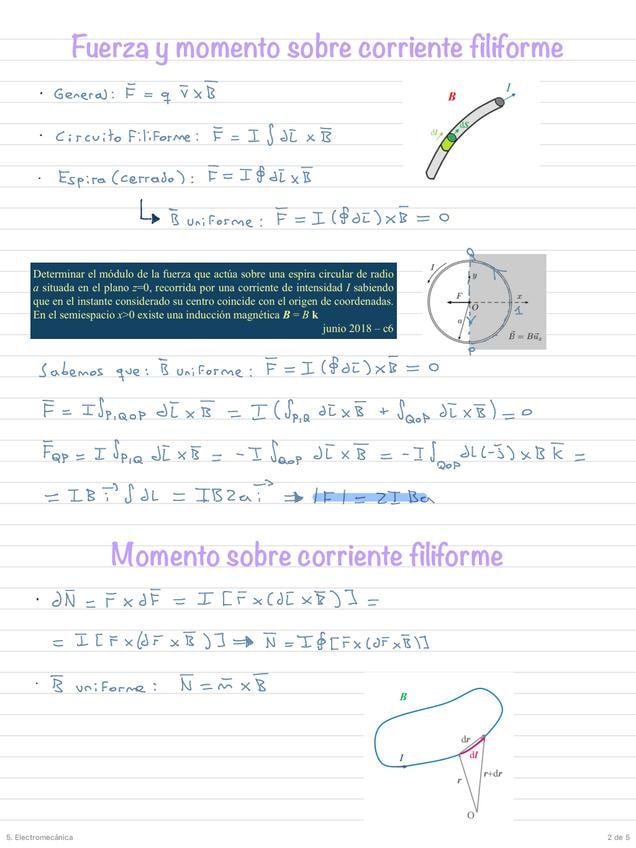 Fuerza y momento sobre corriente filiforme
· General: F̅ = q v̅ x B̅
B I
dl dS
· Circuito Filiforme: F̅ = I ∫ dL̅ x B̅
· Espira (cerrado): F̅ = I ∮ dL̅ x B̅
↳ B̅ uniforme: F̅ = I (∮ dL̅) x B̅ = 0
Determinar el módulo de la fuerza que actúa sobre una espira circular de radio
a situada en el plano z=0, recorrida por una corriente de intensidad I sabiendo
que en el instante considerado su centro coincide con el origen de coordenadas.
En el semiespacio x>0 existe una inducción magnética B = B k
junio 2018 – c6
Q
I y
F O x
a 1
B⃗ = Bu⃗z
P
Sabemos que: B̅ uniforme: F̅ = I (∮ dL̅) x B̅ = 0
F̅ = I ∫P,QOP dL̅ x B̅ = I (∫P,Q dL̅ x B̅ + ∫QOP dL̅ x B̅) = 0
F̅QP = I ∫P,Q dL̅ x B̅ = - I ∫QOP dL̅ x B̅ = - I ∫QOP dL (-j̅) x B k̅ =
= I B i⃗ ∫ dL = I B 2a i⃗ ⇒ |F̅| = 2 I B a
Momento sobre corriente filiforme
· dN̅ = r̅ x dF̅ = I [ r̅ x (dL̅ x B̅)] =
= I [ r̅ x (dr̅ x B̅)] ⇒ N̅ = I ∮ [ r̅ x (dr̅ x B̅)]
· B̅ uniforme: N̅ = m̅ x B̅
B
dr
I dl
r r+dr
O
5. Electromecánica 2 de 5